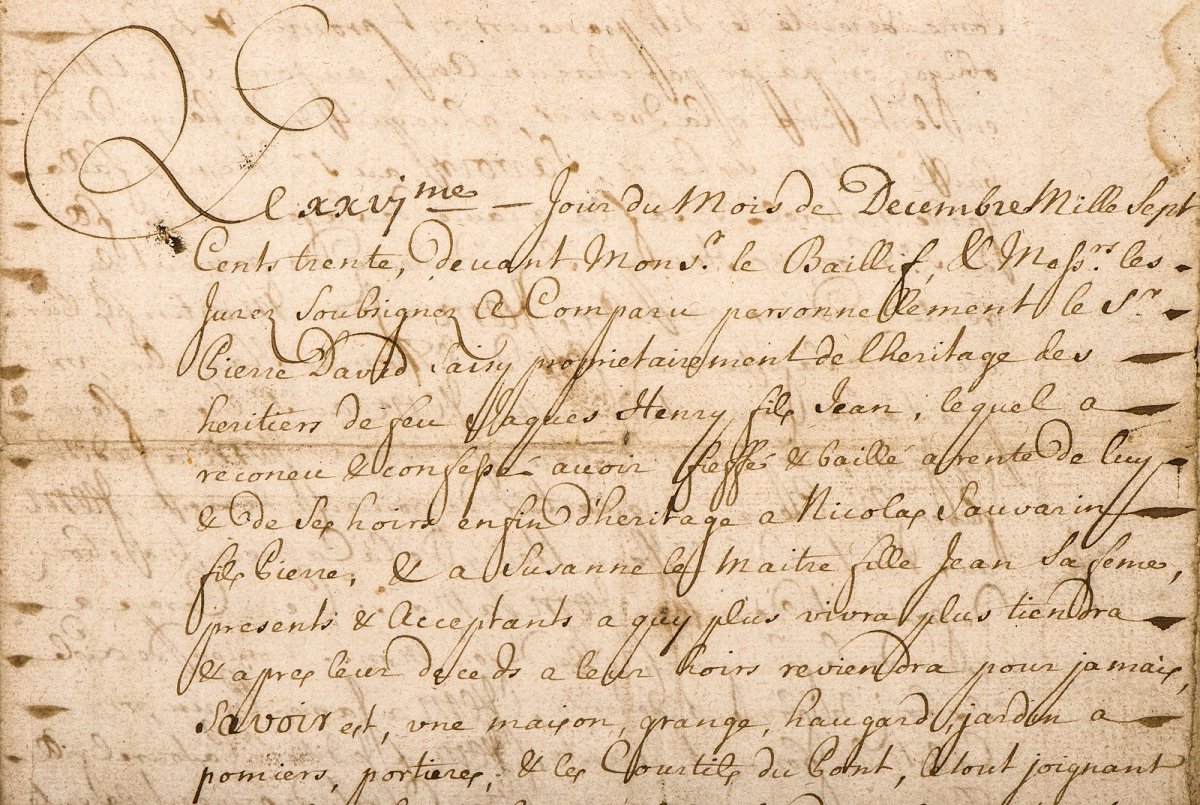 Le xxvj me — Jour du Mois de Decembre Mille Sept
Cents trente, devant Mons.r le Baillif, & Mess.rs les
Jurez Soubsignez Est Comparu personnellement le S.r
Pierre David proprietairement de l'heritage des
heritiers de feu Jaques Henry fils Jean, lequel a
reconeu & confessé avoir fieffé & baillé a rente de luy
& de Ses hoirs enfin d'heritage a Nicolas Sauvarin
fils Pierre, & a Susanne le Maitre fille Jean Sa feme,
presents & Acceptants a quy plus vivra plus tiendra
& apres leur deceds a leur hoirs reviendra pour jamais,
Savoir est, vne maison, grange, haugard, jardin a
pomiers, portieres, & les Courtils du Pont, le tout joignant